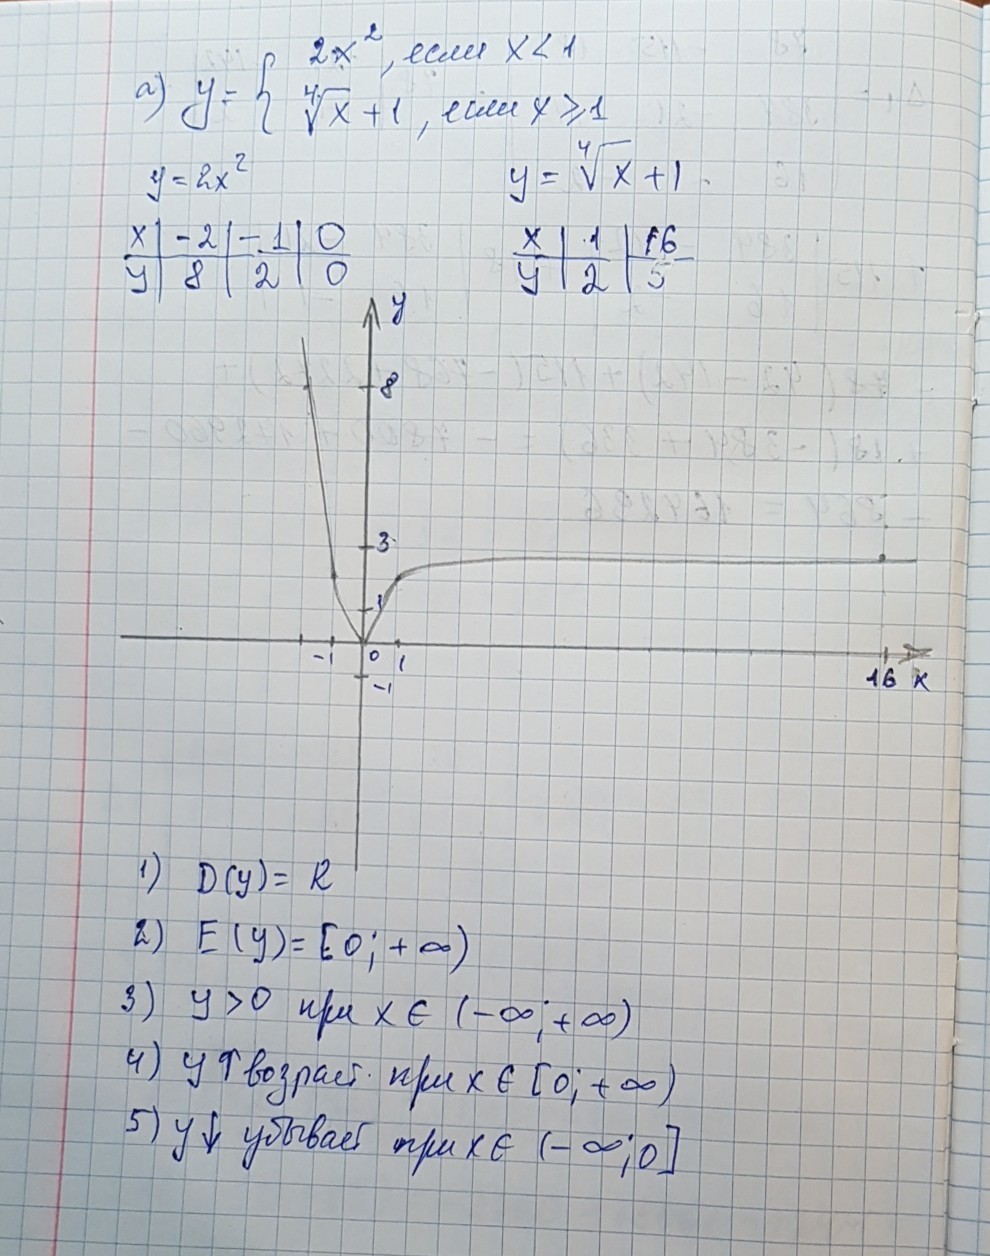 а) y = { 2x², если x < 1
∜x + 1, если x ≥ 1
y = 2x² y = ∜x + 1
x | -2 | -1 | 0 x | 1 | 16
y | 8 | 2 | 0 y | 2 | 5
y
8
3
1
-1 0 1 16 x
-1
1) D(y) = R
2) E(y) = [0; +∞)
3) y > 0 при x ∈ (-∞; +∞)
4) y ↑ возраст. при x ∈ [0; +∞)
5) y ↓ убывает при x ∈ (-∞; 0]